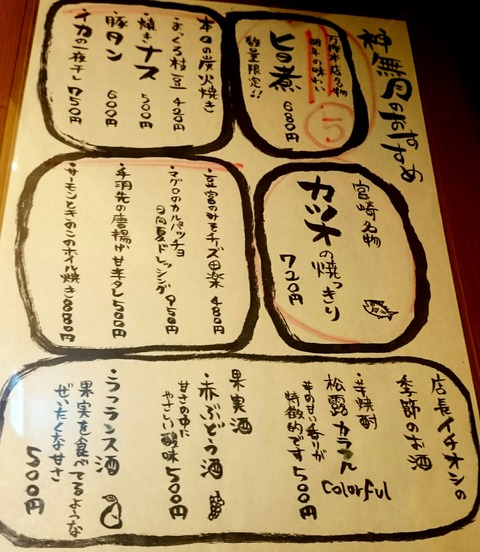 のおすすめ
万神本店の名物
ヒロ煮 680円
数量限定!!
本日の炭火焼き
・おくら 400円
・焼きナス 500円
・豚タン 600円
・イカの一夜干し 750円
宮崎名物
カツオの焼っきり
720円
・豆富のみそチーズ田楽 480円
・マグロのカルパッチョ
日向夏ドレッシング 950円
・手羽先の唐揚げ 甘辛タレ 500円
・サーモンときのこのホイル焼き 880円
店長イチオシの
季節のお酒
・芋焼酎
松露カラフル
colorful
芋の甘い香りが
特徴的です 500円
果実酒
・赤ぶどう酒
甘さの中に
やさしい酸味 500円
・ラフランス酒
果実を食べてるような
ぜいたくな甘さ
500円